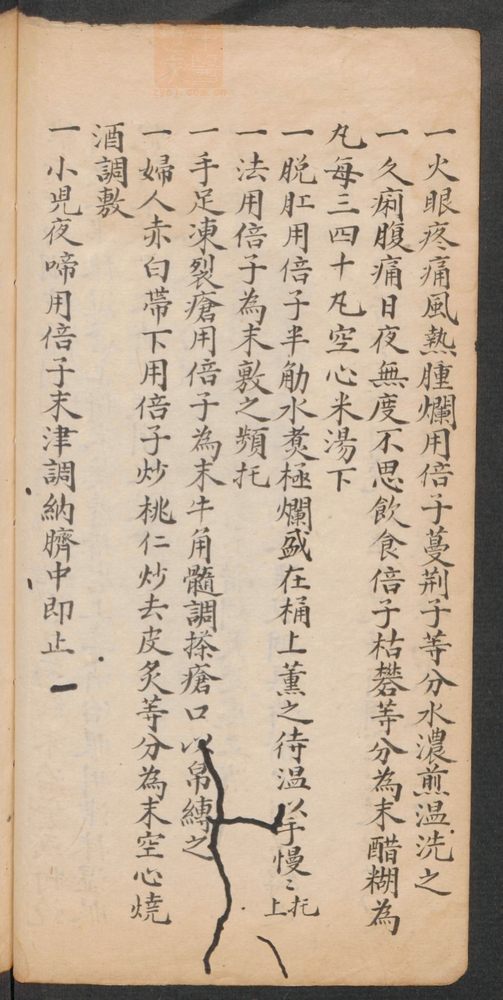 一火眼疼痛風熱腫爛用倍子蔓荆子等分水濃煎温洗之
一久痢腹痛日夜無度不思飲食倍子枯礬等分為末醋糊為
丸每三四十丸空心米湯下
一脫肛用倍子半觔水煑極爛盛在桶上薰之待温以手慢〻托上
一法用倍子為末敷之頻托
一手足凍裂瘡用倍子為末牛角髓調搽瘡口以帛縛之
一婦人赤白帶下用倍子炒桃仁炒去皮炙等分為末空心燒
酒調敷
一小兒夜啼用倍子末津調納臍中即止